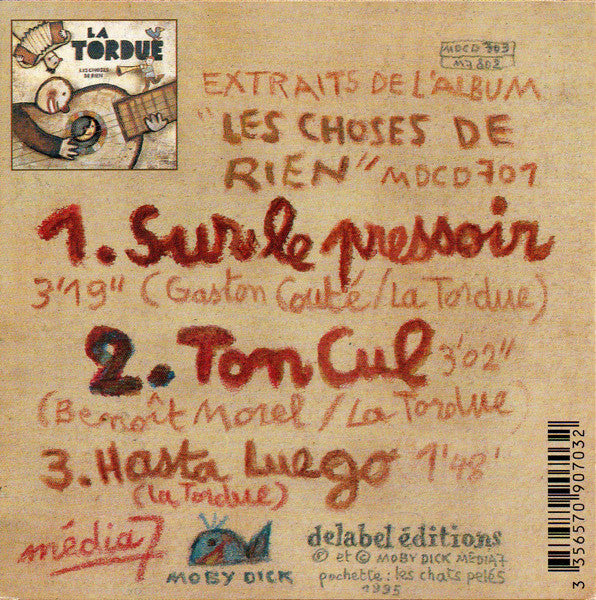 LA
TORDUE
LES CHOSES
DE RIEN
MDCD 703
M7 802
EXTRAITS DE L'ALBUM
"LES CHOSES DE
RIEN" MDCD701
1. Sur le pressoir
3'19" (Gaston Couté/La Tordue)
2. Ton Cul 3'02"
(Benoît Morel/La Tordue)
3. Hasta Luego 1'48'
(La Tordue)
média7
MOBY DICK
delabel éditions
℗ et © MOBY DICK MEDIA7
pochette: les chats pelés
1995
3 356570 907032